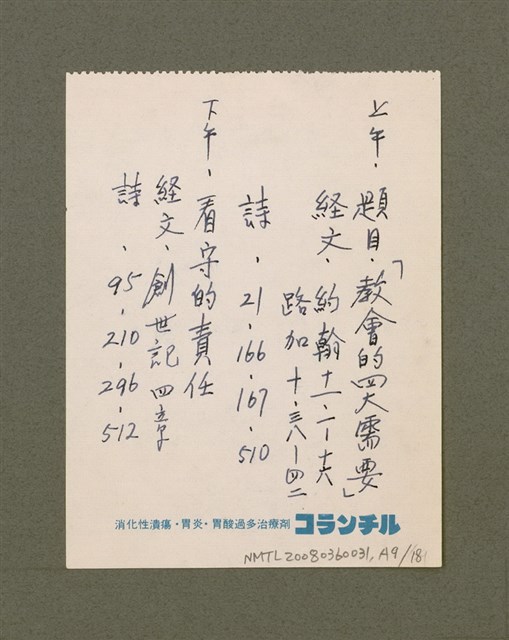 上午、題目、「教會的四大需要」
経文、約翰十一・二ー十六
路加 十・三八ー四二
詩、21・166・167・510
下午、看守的責任
経文、創世記 四章
詩、95・210・296・512
消化性潰瘍・胃炎・胃酸過多治療剤 コランチル
NMTL20080360031, A9/181